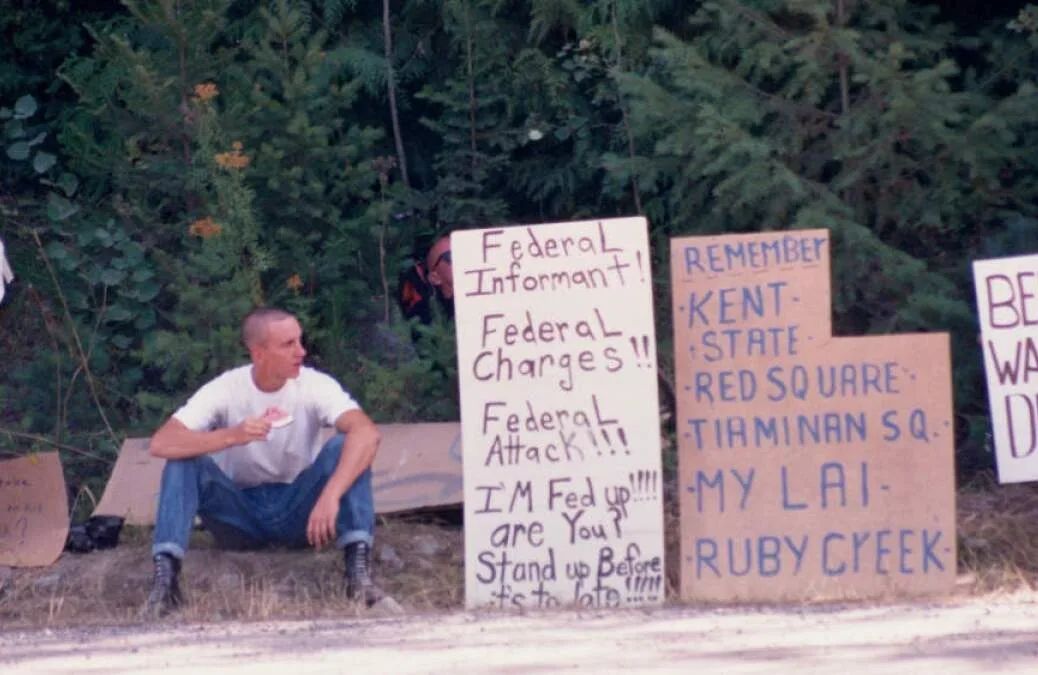 Federal
Informant!
Federal
Charges!!
Federal
Attack!!!
I'M Fed up!!!!
are You?
Stand up Before
it's to late!!!!!
REMEMBER
·KENT·
·STATE·
·RED SQUARE·
·TIAMINAN SQ.·
·MY LAI·
·RUBY CREEK·
BE
WA
D
?